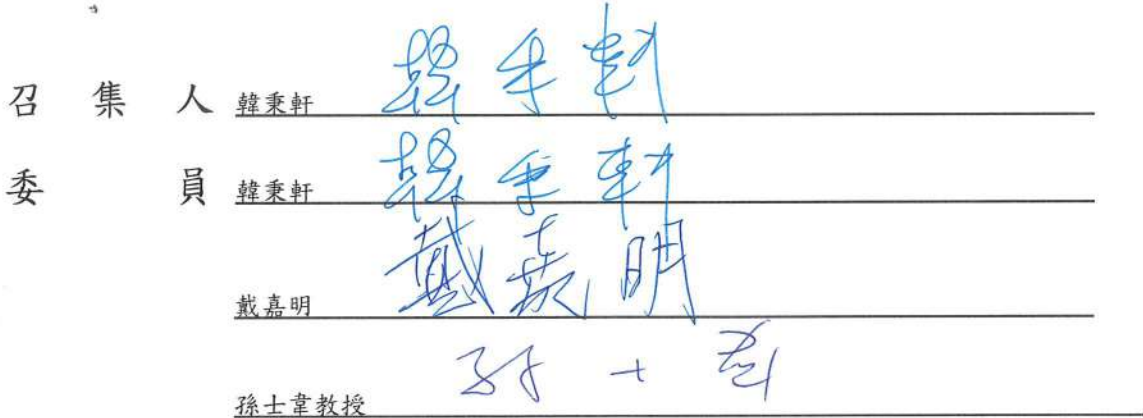 召集人 韓秉軒 韓秉軒
委員 韓秉軒 韓秉軒
戴嘉明 戴嘉明
孫士韋教授 孫士韋